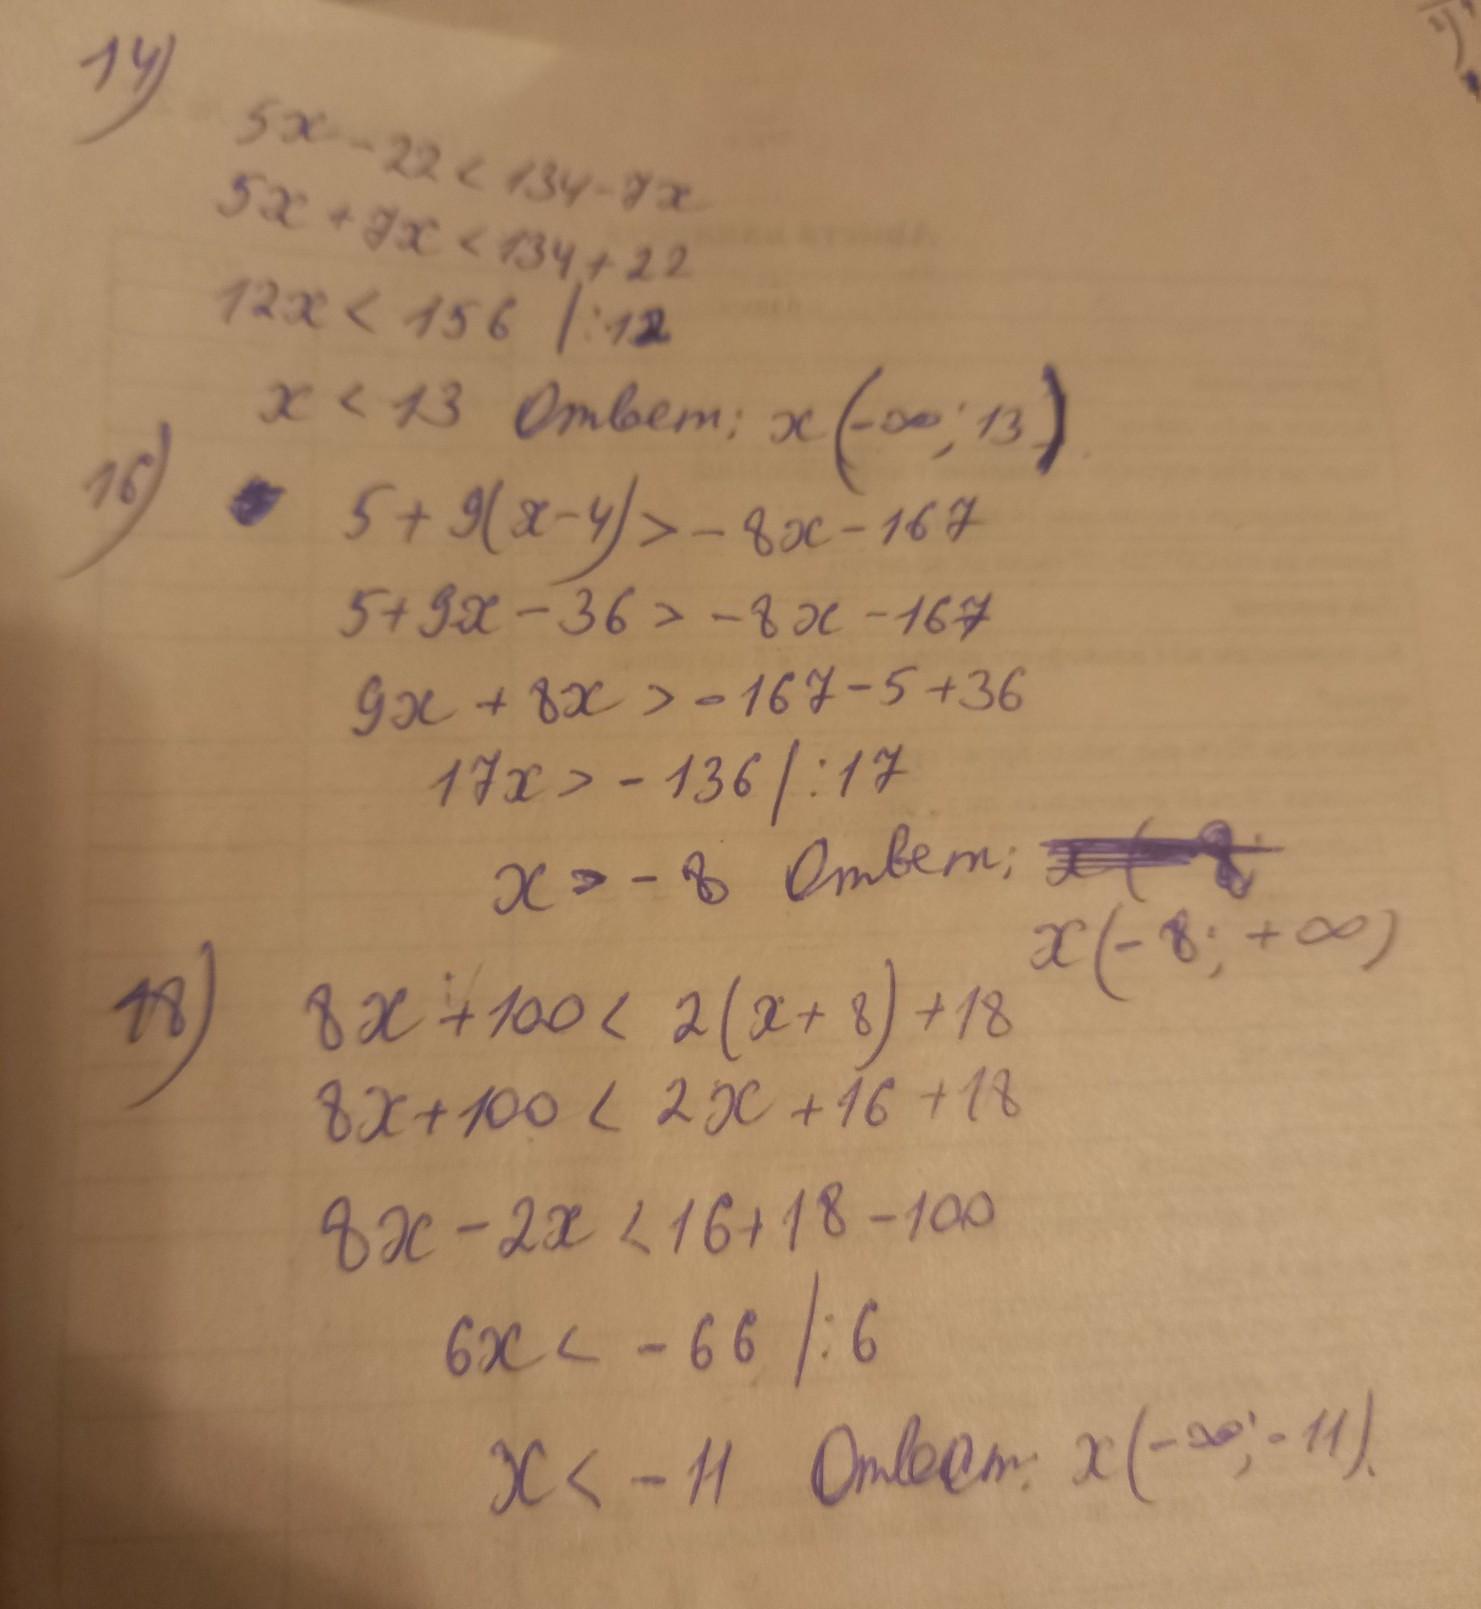 14)
5x - 22 < 134 - 7x
5x + 7x < 134 + 22
12x < 156 | : 12
x < 13 Ответ: x (-∞; 13)
16)
5 + 9(x - 4) > - 8x - 167
5 + 9x - 36 > - 8x - 167
9x + 8x > - 167 - 5 + 36
17x > - 136 | : 17
x > - 8 Ответ:
x (- 8; + ∞)
18)
8x + 100 < 2(x + 8) + 18
8x + 100 < 2x + 16 + 18
8x - 2x < 16 + 18 - 100
6x < - 66 | : 6
x < - 11 Ответ: x (-∞; - 11).